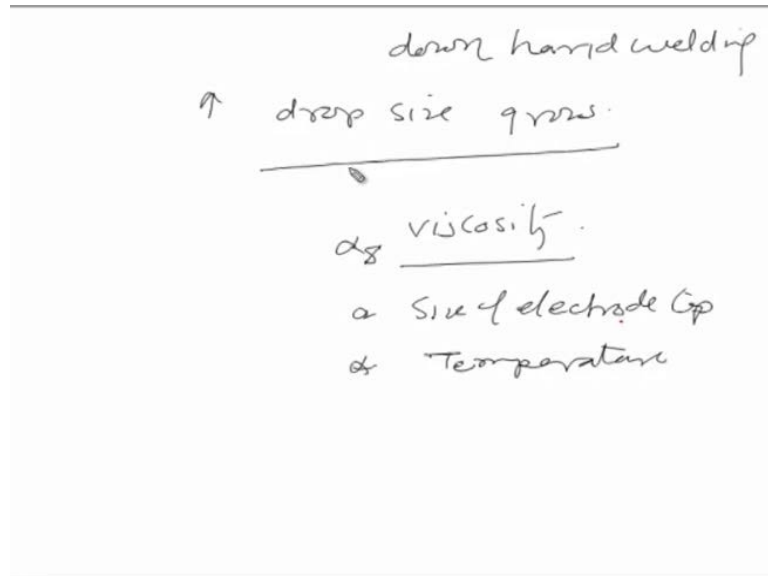 down hand welding
↑ drop size grows.
α viscosity.
α size of electrode tip
α Temperature